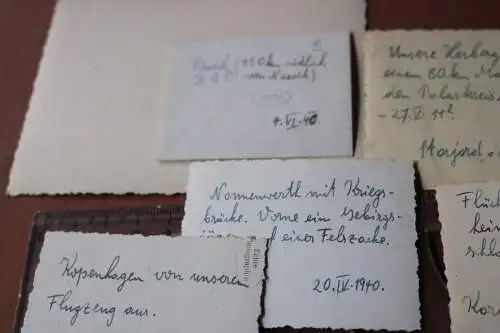 (150 km südlich
von Narvik)
7. VI. 40.
Unsere Herbag
einem 80 km Ma
den Polarkreis
- 27. V. 11ʰ
Storjord,
Nonnenwerth mit Kriegs-
brücke. Vorne ein Gebirgs-
einer Felszacke.
20. IV. 1940.
Kopenhagen von unserem
Flugzeug aus.
Flüch
hein
schla